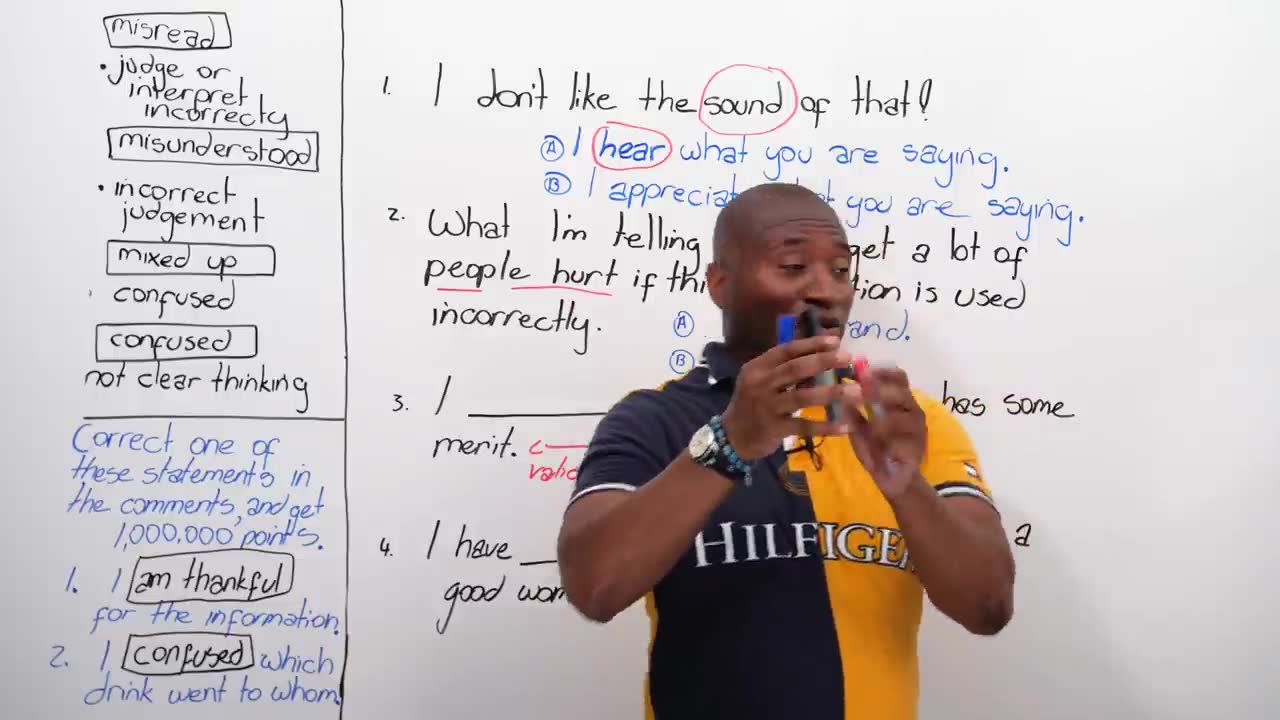 misread
• judge or
interpret
incorrecty
misunderstood
• incorrect
judgement
mixed up
confused
confused
not clear thinking
Correct one of
these statements in
the comments, and get
1,000,000 points.
1. I am thankful
for the information.
2. I confused which
drink went to whom.
1. I don't like the sound of that!
Ⓐ I hear what you are saying.
Ⓑ I you are saying.
2. What I'm telling get a lot of
people hurt if is used
incorrectly.
Ⓐ
Ⓑ
3. I ___ has some
merit.
4. I have ___ a
good
HILFIGER